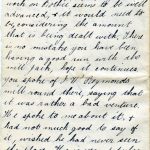 work on Bothie seems to be well
advanced, & it would need to
by considering the amount
that is being dealt with. There
is no mistake you have been
having a good run with the
mill path, hope it continues
you spoke of J. W. Reynolds
mill round there, saying that
it was rather a bad venture.
He spoke to me about it, &
had not much good to say of
it, wished he had never seen
the place.